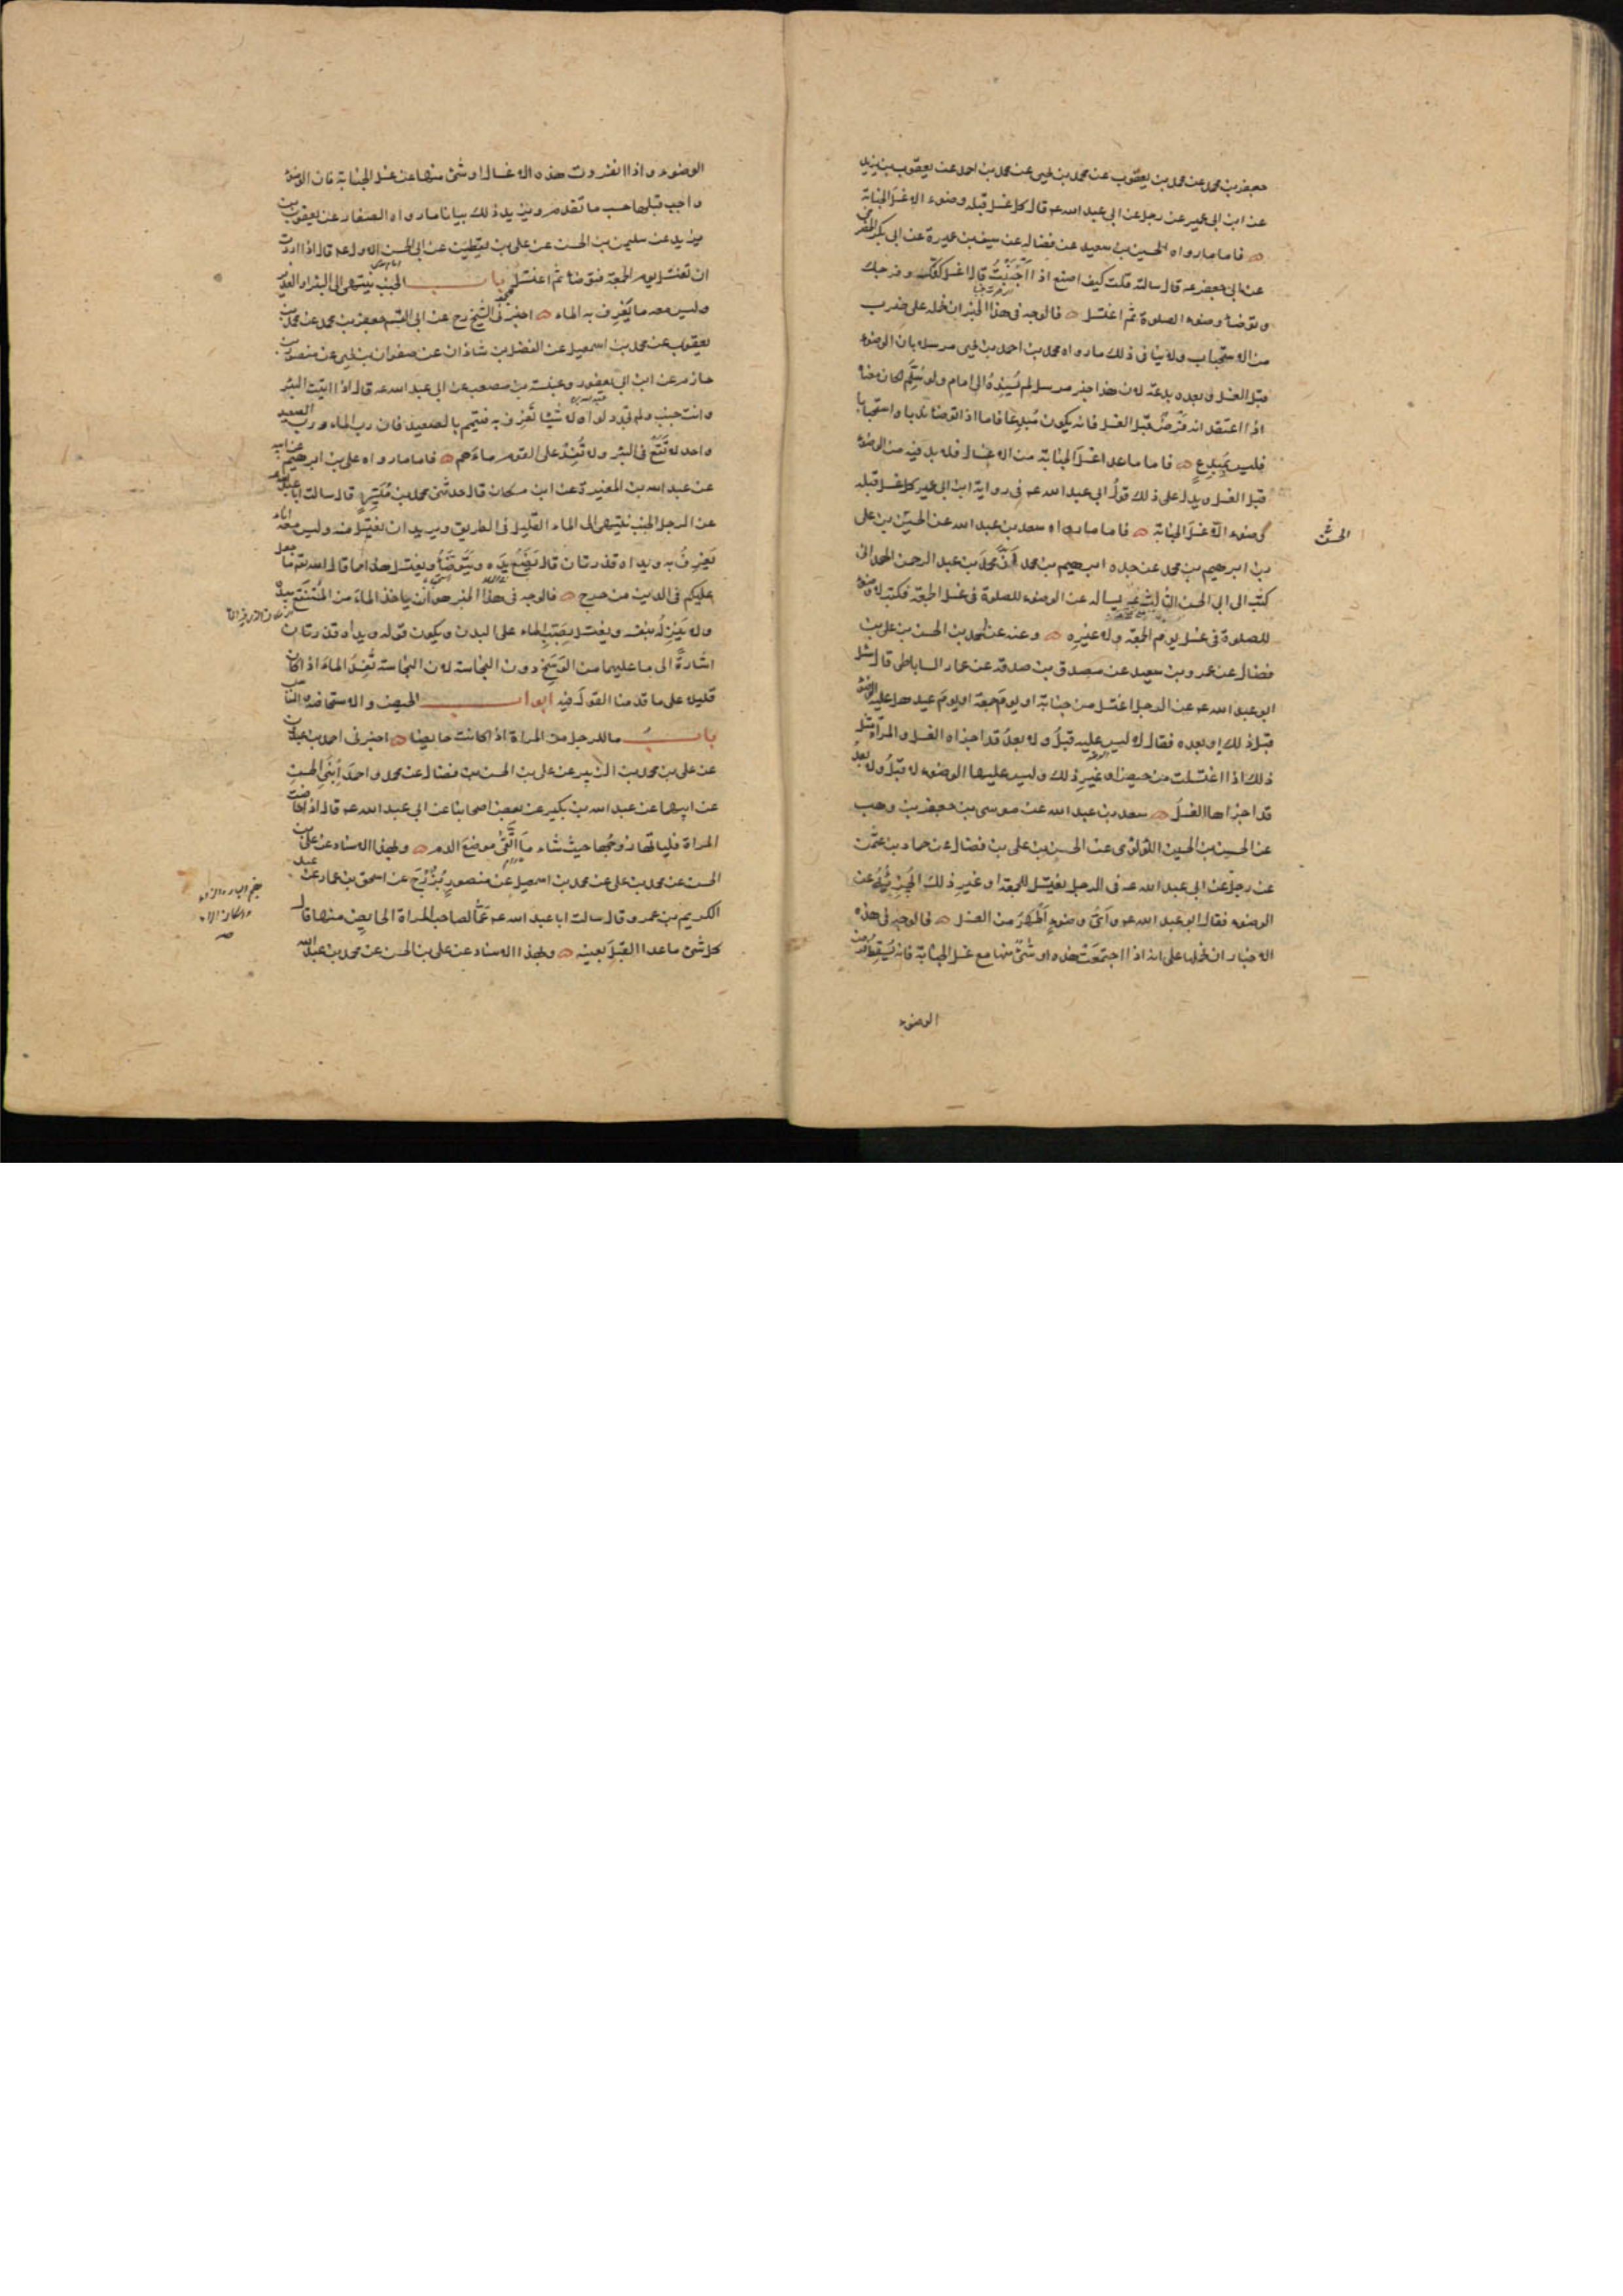 جعفر بن محمد عن محمد بن يعقوب عن محمد بن يحيى عن محمد بن احمد عن يعقوب بن يزيد
عن ابن ابى عمير عن رجل عن ابى عبد الله عم قال كل غسل قبله وضوء الا غسل الجنابة
فاما ما رواه الحسين بن سعيد عن فضالة عن سيف بن عميرة عن ابى بكر الحضرمى
عن ابى جعفر عم قال سالته قلت كيف اصنع اذا اجنبت قال اغسل كفك وفرجك
وتوضا وضوء الصلوة ثم اغتسل فالوجه فى هذا الخبر ان نحمله على ضرب
من الاستحباب ولا ينافى ذلك ما رواه محمد بن احمد بن يحيى مرسلا بان الوضوء
قبل الغسل وبعده بدعة لان هذا خبر مرسل لم يسنده الى امام ولو سلم لكان معناه
اذا اعتقد انه فرض قبل الغسل فانه يكون مبدعا فاما اذا توضا ندبا واستحبابا
فليس بمبدع فاما ما عدا غسل الجنابة من الاغسال فلا بد فيه من الوضوء
قبل الغسل ويدل على ذلك قول ابى عبد الله عم فى رواية ابن ابى عمير كل غسل قبله
وضوء الا غسل الجنابة فاما ما رواه سعد بن عبد الله عن الحسن بن على
بن ابرهيم بن محمد عن جده ابرهيم بن محمد ان محمد بن عبد الرحمن الهمدانى
كتب الى ابى الحسن الثالث عم يساله عن الوضوء للصلوة فى غسل الجمعة فكتب لا وضوء
للصلوة فى غسل يوم الجمعة ولا غيره وعنه عن احمد بن الحسن بن على بن
فضال عن عمرو بن سعيد عن مصدق بن صدقة عن عمار الساباطى قال سئل
ابو عبد الله عم عن الرجل اغتسل من جنابة او يوم جمعة او يوم عيد هل عليه الوضوء
قبل ذلك او بعده فقال لا ليس عليه قبل ولا بعد قد اجزاه الغسل والمراة مثل
ذلك اذا اغتسلت من حيض او غير ذلك وليس عليها الوضوء لا قبل ولا بعد
قد اجزاها الغسل سعد بن عبد الله عن موسى بن جعفر بن وهب
عن الحسين بن الحسين اللؤلؤى عن الحسن بن على بن فضال عن حماد بن عثمن
عن رجل عن ابى عبد الله عم فى الرجل يغتسل للجمعة او غير ذلك ايجزئه عن
الوضوء فقال ابو عبد الله عم واى وضوء اطهر من الغسل فالوجه فى هذه
الاخبار ان نحملها على انه اذا اجتمعت هذه او شئ منها مع غسل الجنابة فانه يسقط فرض
الوضوء
الوضوء واذا انفردت هذه الاغسال او شئ منها عن غسل الجنابة فان الوضوء
واجب قبلها حسب ما تقدم ويزيد ذلك بيانا ما رواه الصفار عن يعقوب بن
يزيد عن سليمن بن الحسن عن على بن يقطين عن ابى الحسن الاول عم قال اذا اردت
ان تغتسل يوم الجمعة فتوضا ثم اغتسل باب الجنب ينتهى الى البئر او الغدير
وليس معه ما يغرف به الماء اخبرنى الشيخ رح عن ابى القسم جعفر بن محمد عن محمد بن
يعقوب عن محمد بن اسمعيل عن الفضل بن شاذان عن صفوان بن يحيى عن منصور بن
حازم عن ابن ابى يعفور وعنبسة بن مصعب عن ابى عبد الله عم قال اذا اتيت البئر
وانت جنب ولم تجد دلوا ولا شيئا تغرف به فتيمم بالصعيد فان رب الماء ورب الصعيد
واحد لا تقع فى البئر ولا تفسد على القوم ماءهم فاما ما رواه على بن ابرهيم عن ابيه
عن عبد الله بن المغيرة عن ابن مسكان قال حدثنى محمد بن ميسر قال سالت ابا عبد الله عم
عن الرجل الجنب ينتهى الى الماء القليل فى الطريق ويريد ان يغتسل منه وليس معه اناء
يغرف به ويداه قذرتان قال يضع يده ويتوضا ويغتسل هذا مما قال الله تعالى ما جعل
عليكم فى الدين من حرج فالوجه فى هذا الخبر هو ان ياخذ الماء من المستنقع بيده
ولا ينزله بنفسه ويغتسل بصب الماء على البدن ويكون قوله ويداه قذرتان
اشارة الى ما عليهما من الوسخ دون النجاسة لان النجاسة تفسد الماء اذا كان
قليلا على ما قدمنا القول فيه ابواب الحيض والاستحاضة والنفاس
باب ما للرجل من المراة اذا كانت حايضا اخبرنى احمد بن عبدون
عن على بن محمد بن الزبير عن على بن الحسن بن فضال عن محمد واحمد ابنى الحسن
عن ابيهما عن عبد الله بن بكير عن بعض اصحابنا عن ابى عبد الله عم قال اذا حاضت
المراة فلياتها زوجها حيث شاء ما اتقى موضع الدم وبهذا الاسناد عن على بن
الحسن عن محمد بن على عن محمد بن اسمعيل عن منصور بزرج عن اسحق بن عمار عن عبد
الكريم بن عمرو قال سالت ابا عبد الله عم عما لصاحب المراة الحايض منها قال
كل شئ ما عدا القبل بعينه وبهذا الاسناد عن على بن الحسن عن محمد بن عبد الله